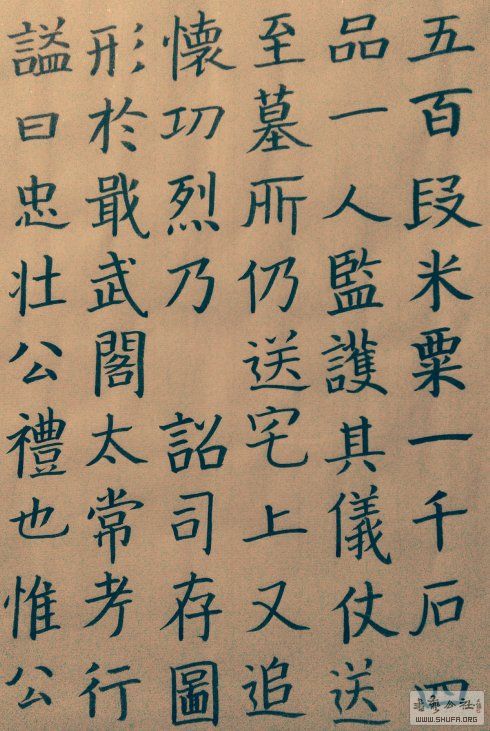 五百段米粟一千石四
品一人監護其儀仗送
至墓所仍送宅上又追
懷功烈乃 詔司存圖
形於戢武閣太常考行
謚曰忠壯公禮也惟公
WWW.SHUFA.ORG